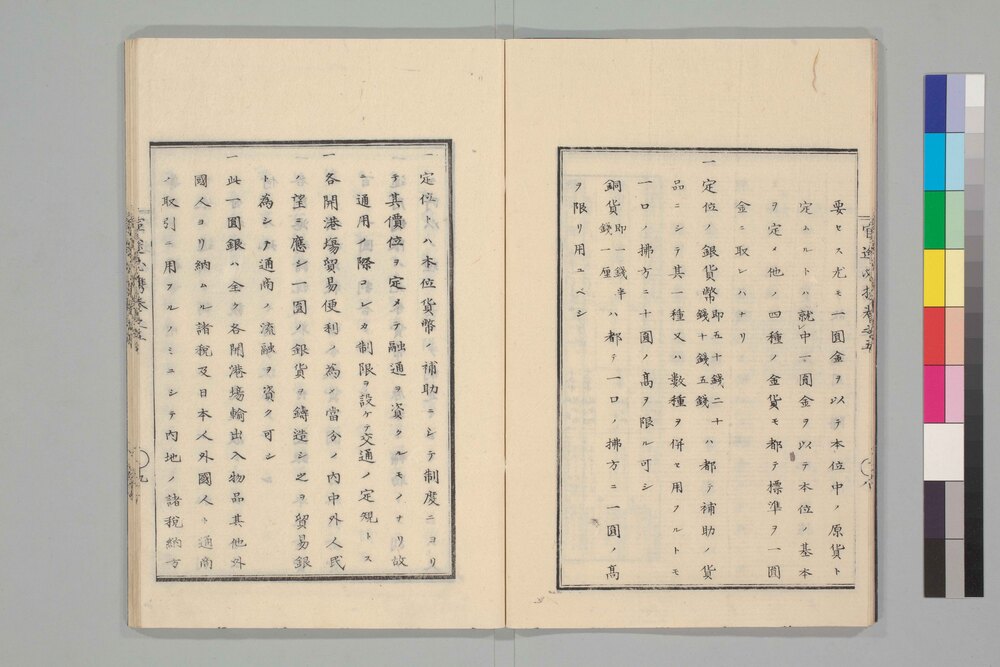 要セス尤モ一圓金ヲ以テ本位中ノ原貨ト
定ムルトハ就中一圓金ヲ以テ本位ノ基本
ヲ定メ他ノ四種ノ金貨モ都テ標準ヲ一圓
金ニ取レハナリ
一定位ノ銀貨幣即五十錢二十錢十錢五錢ハ都テ補助ノ貨
品ニシテ其一種又ハ數種ヲ併セ用フルトモ
一口ノ拂方ニ十圓ノ高ヲ限ル可シ
銅貨即一錢半錢一厘ハ都テ一口ノ拂方ニ一圓ノ高
ヲ限リ用ユベシ
一定位トハ本位貨幣ノ補助ニシテ制度ニヨリ
テ其價位ヲ定メテ融通ヲ資クルモノナリ故
ニ通用ノ際コレカ制限ヲ設ケテ交通ノ定規トス
一各開港場貿易便利ノ為メ當分ノ内中外人民
ノ望ニ應シ一圓ノ銀貨ヲ鑄造シ之ヲ貿易銀
ト為シテ通商ノ流融ヲ資ク可シ
一此一圓銀ハ全ク各開港場輸出入物品其他外
國人ヨリ納ムル諸税及日本人外國人ト通商
ノ取引ニ用フルノミニシテ内地ノ諸税納方